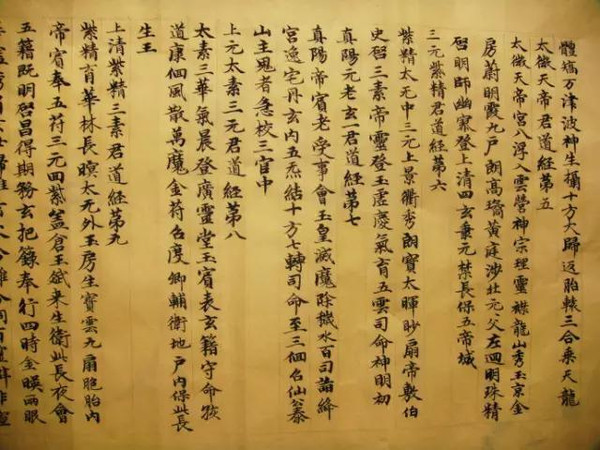 體矯万津波神生攝十方大歸返胎轅三合乗天龍
太微天帝君道経苐五
太微天帝宮八浮入雲營神宗理靈襟龍山秀玉京金
房蔚明霞九戸朗高瑤黄庭渉北元父左迴明珠精
啓明師幽寥登上清四玄乗元禁長保五帝城
三元紫精君道経苐六
紫精太元中三元上景衢秀朗寳太暉眇扇帝敷伯
史啓三素帝靈登玉虛慶氣育五雲司命神明初
真陽元老玄一君道経苐七
真陽帝賓老受事會玉皇滅魔除穢水百司詣絳
宮逸宅丹玄内五炁結十方七轉司命至三個名仙簶
山主鬼者急校三官中
上元太素三元君道経苐八
太素三華氣晨登廣靈堂玉賓表玄籍守命孩
道康佪風散萬魔金苻召度卿輔衛地戸内保此長
生王
上清紫精三素君道経苐九
紫精育華林長暝太无外玉房生寳雲九扇胞胎内
帝賓奉五苻三元四紫盖倉玉斌来生衛此長夜會
五籍既明啓昌得期務玄把錄奉行四時金暎兩眼